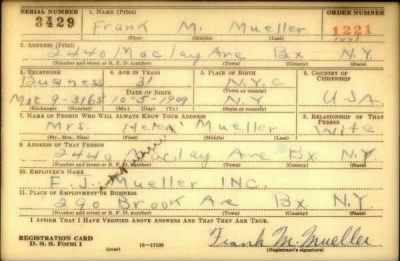 SERIAL NUMBER 1. NAME (Print) ORDER NUMBER
3429 Frank M. Mueller 1221
(First) (Middle) (Last)
2. ADDRESS (Print)
2440 Maclay Ave Bx N.Y.
(Number and street or R. F. D. number) (Town) (County) (State)
3. TELEPHONE 4. AGE IN YEARS 5. PLACE OF BIRTH 6. COUNTRY OF CITIZENSHIP
Business 31 N.Y.C.
DATE OF BIRTH (Town or county)
Mot 9-3165 10-5-1909 N.Y U.S.A
(Exchange) (Number) (Mo.) (Day) (Yr.) (State or country)
7. NAME OF PERSON WHO WILL ALWAYS KNOW YOUR ADDRESS 8. RELATIONSHIP OF THAT PERSON
Mrs. Helen Mueller Wife
(Mr., Mrs., Miss) (First) (Middle) (Last)
9. ADDRESS OF THAT PERSON
2440 Maclay Ave Bx N.Y.
(Number and street or R. F. D. number) (Town) (County) (State)
10. EMPLOYER'S NAME
F. J. Mueller INC.
11. PLACE OF EMPLOYMENT OR BUSINESS
290 Brook Ave Bx N.Y.
(Number and street or R. F. D. number) (Town) (County) (State)
I AFFIRM THAT I HAVE VERIFIED ABOVE ANSWERS AND THAT THEY ARE TRUE.
REGISTRATION CARD
D. S. S. Form 1 (over) 16-17105 Frank M. Mueller
(Registrant's signature)